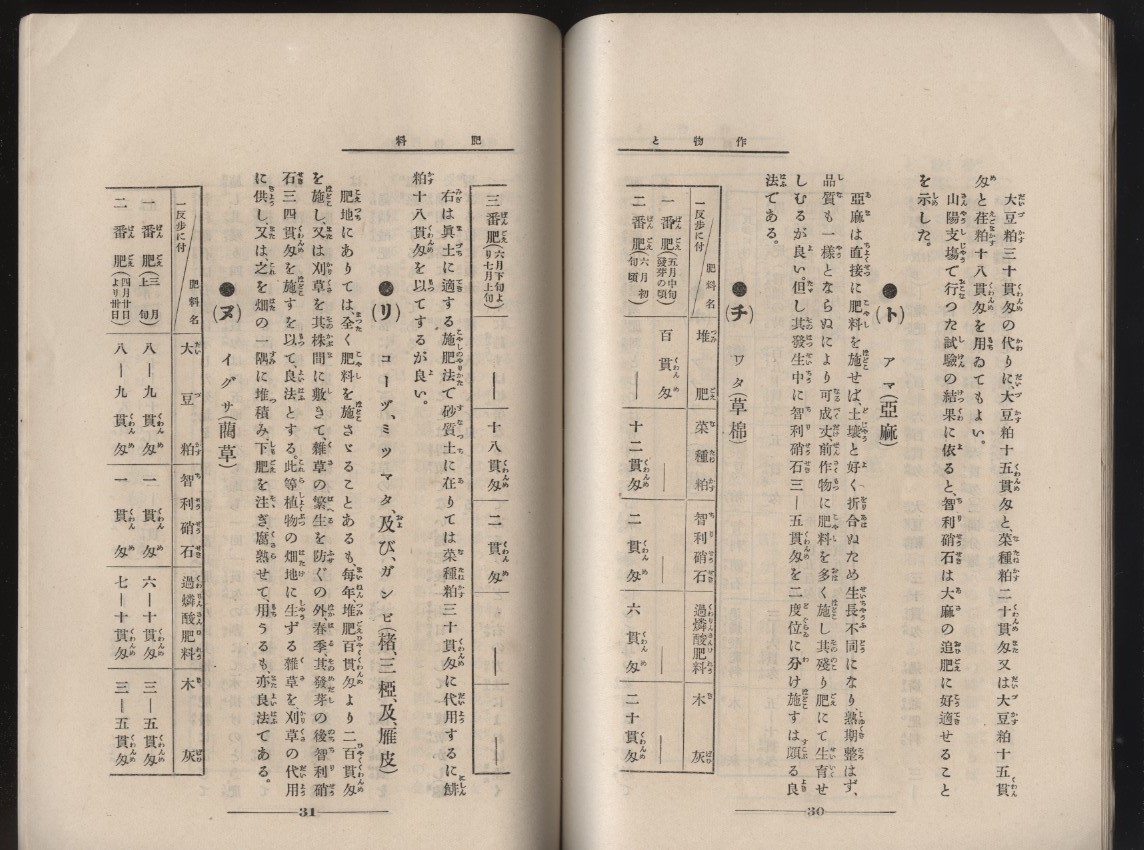 作物と
大豆粕三十貫匁の代りに、大豆粕十五貫匁と、菜種粕二十貫匁又は大豆粕十五貫
匁と荏粕十八貫匁を用ゐてもよい。
山陽支場で行つた試驗の結果に依ると、智利硝石は大麻の追肥に好適せること
を示した。
●(ト) アマ(亞麻)
亞麻は直接に肥料を施せば、土壤と好く折合ぬため生長不同になり、熟期整はず、
品質も一樣とならぬにより可成丈前作物に肥料を多く施し其殘り肥にて生育せ
しむるが良い。但し其發生中に智利硝石三―五貫匁を二度位に分け施すは頗る良
法である。
●(チ) ワタ(草棉)
一反步に付 肥料名 堆肥 菜種粕 智利硝石 過燐酸肥料 木灰
一番肥(五月中旬發芽の頃) 百貫匁 ― ― ― ―
二番肥(六月初旬頃) ― 十二貫匁 二貫匁 六貫匁 二十貫匁
30
肥料
三番肥(六月下旬より七月上旬) ― 十八貫匁 二貫匁 ― ―
右は眞土に適する施肥法で砂質土に在りては菜種粕三十貫匁に代用するに鯡
粕十八貫匁を以てするが良い。
●(リ) コーヅ、ミツマタ、及び、ガンピ(楮、三椏、及、雁皮)
肥地にありては、全く肥料を施さゞることあるも、每年、堆肥百貫匁より二百貫匁
を施し、又は刈草を其株間に敷きて、雜草の繁生を防ぐの外、春季、其發芽の後智利硝
石三四貫匁を施すを以て、良法とする。此等植物の畑地に生ずる雜草を、刈草の代用
に供し、又は、之を畑の一隅に堆積み、下肥を注ぎ、腐熟せて、用うるも亦良法である。
●(ヌ) イグサ(藺草)
一反步に付 肥料名 大豆粕 智利硝石 過燐酸肥料 木灰
一番肥(三月上旬) 八―九貫匁 一貫匁 六―十貫匁 三―五貫匁
二番肥(四月廿日より卅日) 八―九貫匁 一貫匁 七―十貫匁 三―五貫匁
31